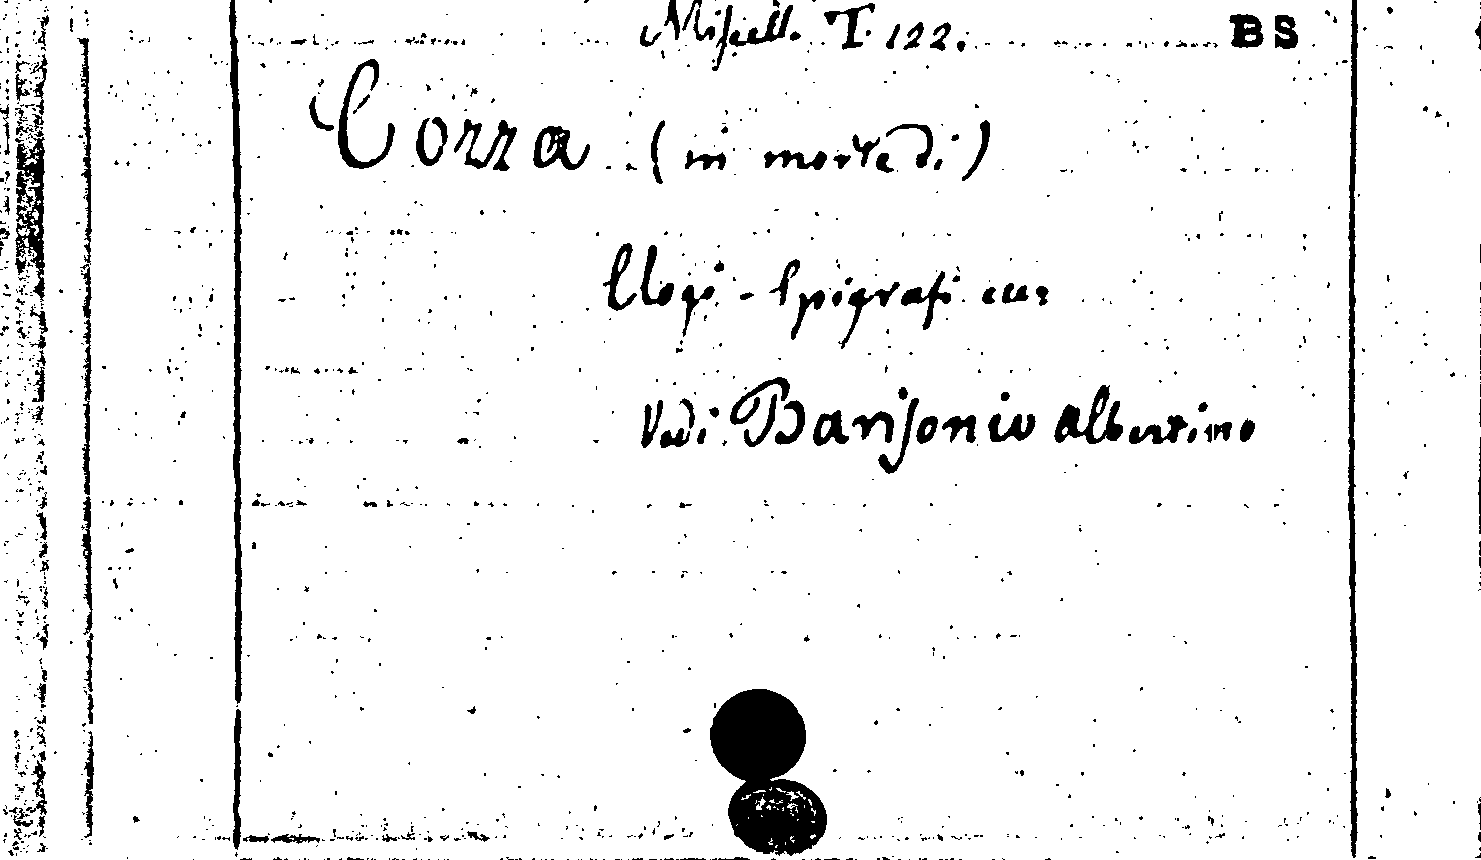 Miscell. T. 122. BS
Cozza (in morte di)
Elogi - Epigrafi ecc
Vedi Barisonio Albertino